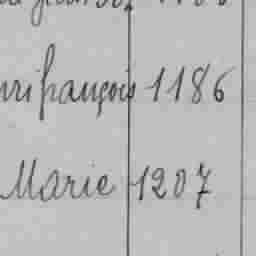 urifrançois 1186
Marie 1207